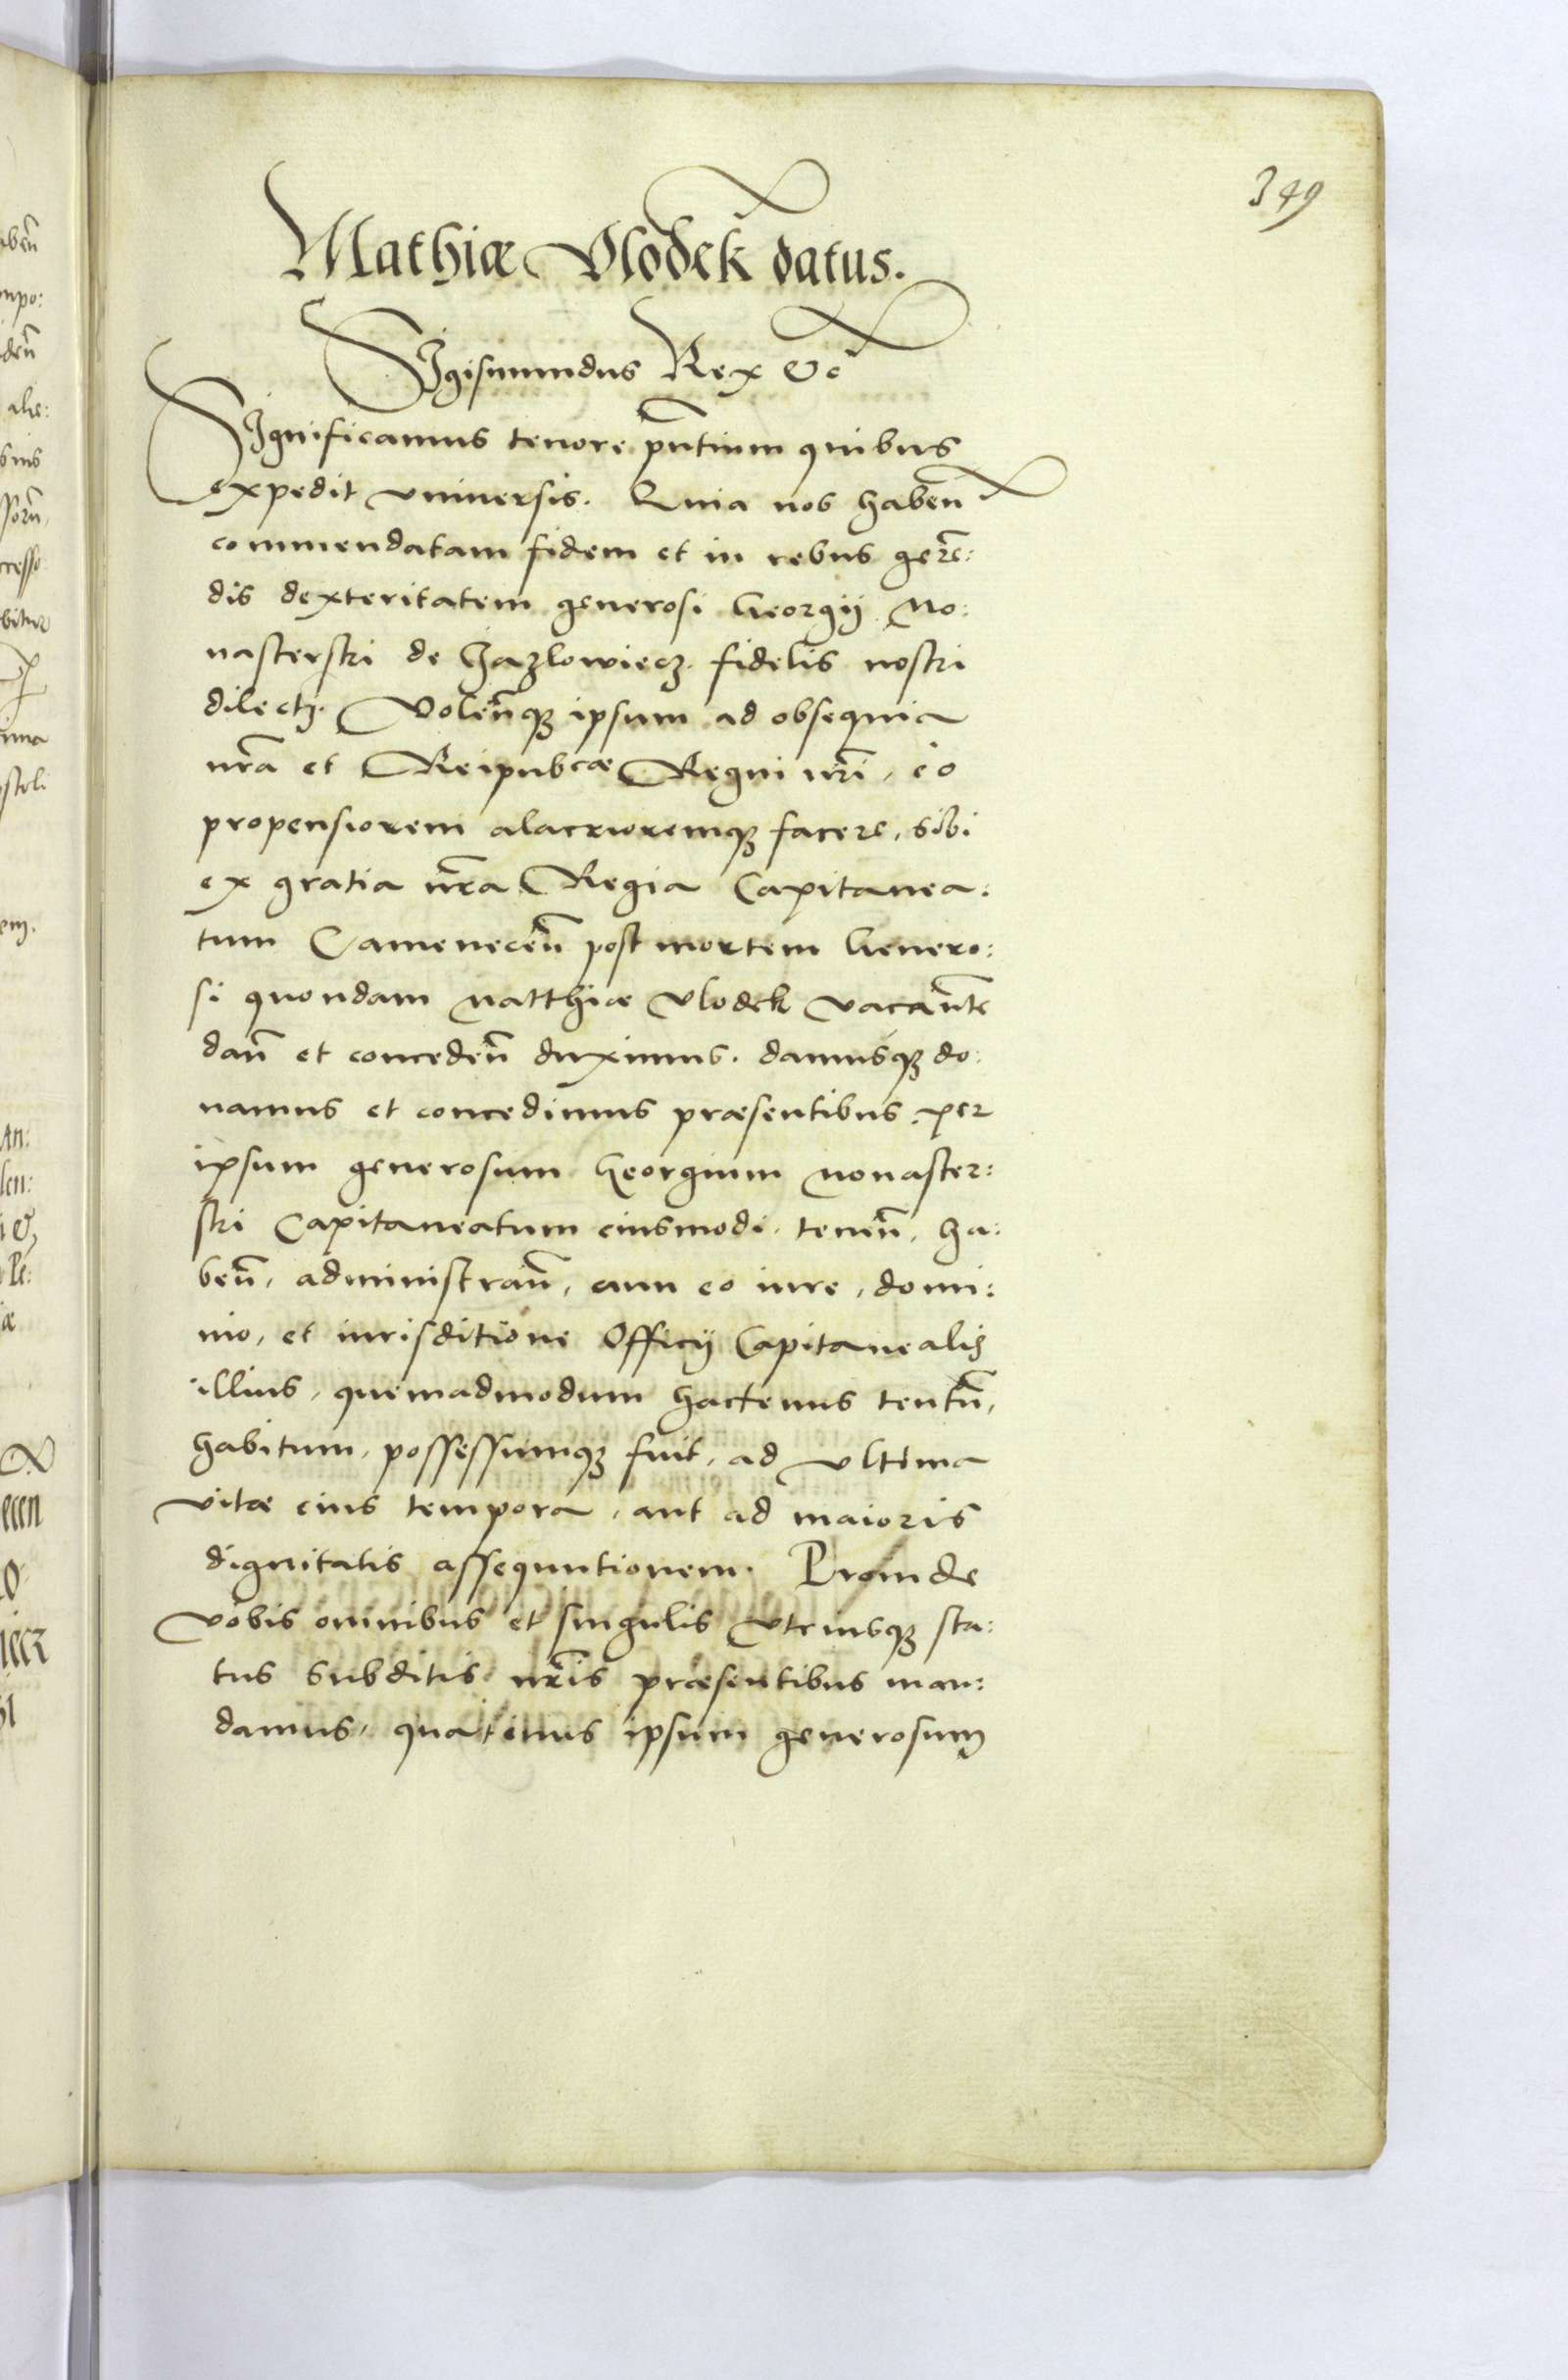 349
Mathiæ Vlodek datus.
Sigismundus Rex &c̃
Significamus tenore pñtium quibus
expedit vniuersis. Quia nos habeñ
commendatam fidem et in rebus gerẽ:
dis dexteritatem generosi Georgij Mo:
nasterski de Jazlowiecz fidelis nostri
dilecti. Voleñq3 ipsum ad obsequia
nr̃a et Reipubcæ Regni nr̃i, eo
propensiorem alacrioremq3 facere, sibi
ex gratia nr̃a Regia Capitanea:
tum Cameneceñ post mortem Genero:
si quondam Matthiæ Vlodek vacañte
dañ et concedeñ duximus. damusq3 do:
namus et concedimus præsentibus. per
ipsum generosum Georgium Monaster:
ski Capitaneatum eiusmodi. teneñ, ha:
beñ, administrañ, cum eo iure, domi:
nio, et iurisditione Officij Capitanealis
illius, quemadmodum hactenus tentũ,
habitum, possessumq3 fuit, ad vltima
vitæ eius tempora, aut ad maioris
dignitatis assequutionem. Proinde
vobis omnibus et singulis vtriusq3 sta:
tus subditis nr̃is præsentibus man:
damus, quatenus ipsum generosum